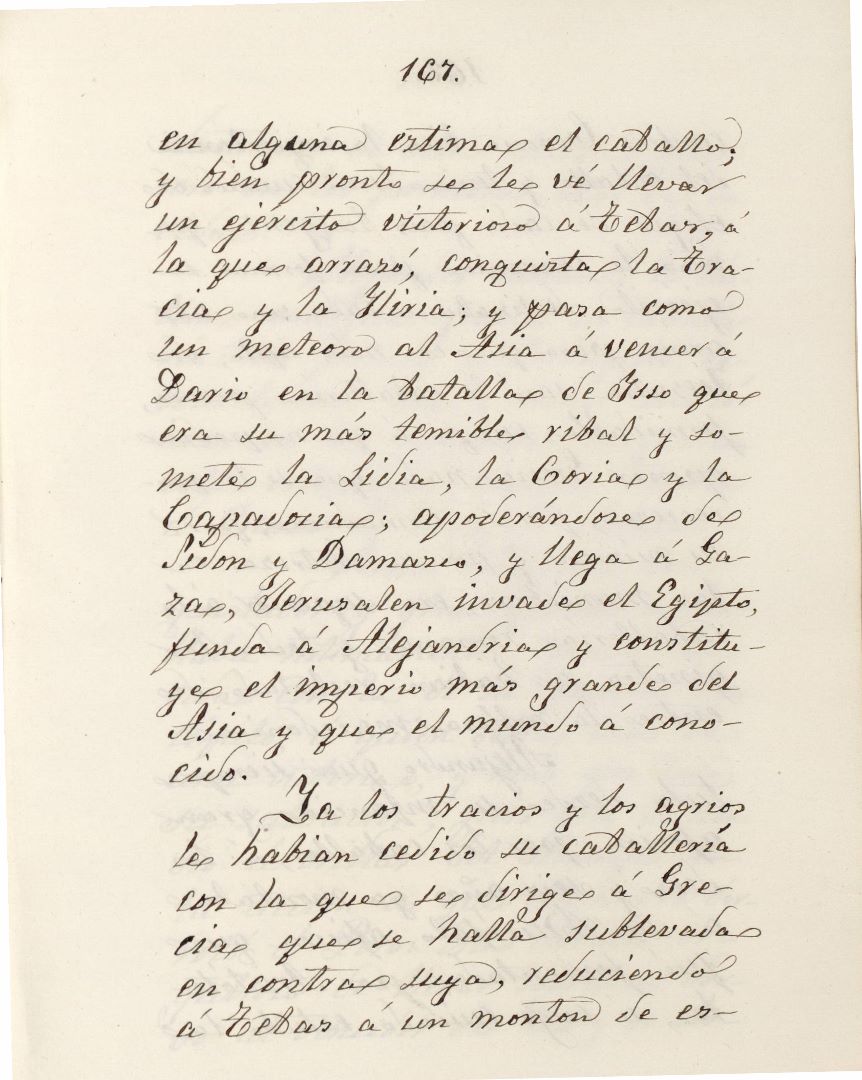 167.
en alguna estima el caballo;
y bien pronto se le vé llevar
un ejército victorioso á Tebas, á
la que arrazó, conquista la Tra-
cia y la Iliria; y pasa como
un meteoro al Asia á vencer á
Dario en la batalla de Isso que
era su más temible ribal y so-
mete la Lidia, la Coria y la
Capadocia; apoderándose de
Sidon y Damasco, y llega á Ga-
za, Jerusalen invade el Egipto,
funda á Alejandria y constitu-
ye el imperio más grande del
Asia y que el mundo á cono-
cido.
Ya los tracios y los agrios
le habian cedido su caballería
con la que se dirige á Gre-
cia que se halla sublevada
en contra suya, reduciendo
á Tebas á un monton de es-